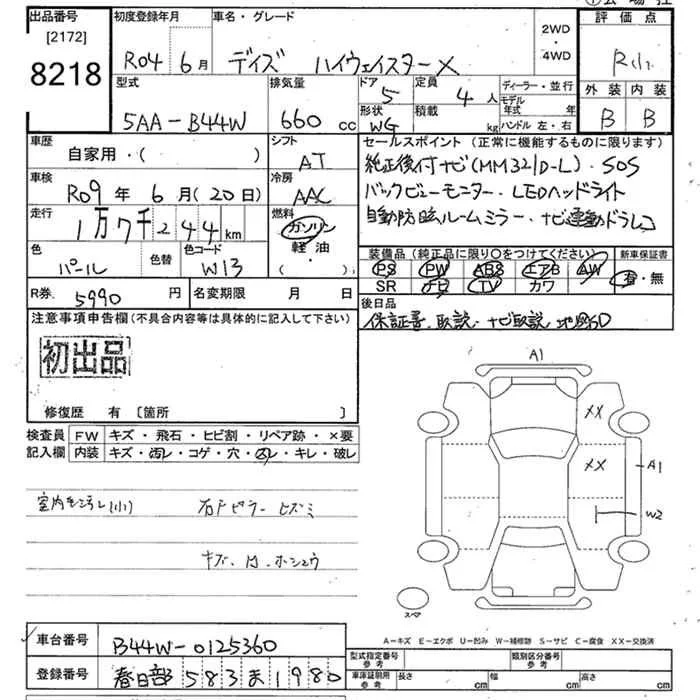 出品番号 初度登録年月 車名・グレード 2WD・4WD 評価点
[2172]
8218
R04年6月 デイズ ハイウェイスターX
型式 排気量 ドア 定員 ディーラー・並行 外装 内装
5AA-B44W 660cc 5 4人 モデル年式 年 B B
形状 積載 ハンドル 左・右
WG kg
車歴 シフト セールスポイント(正常に機能するものに限ります)
自家用・( ) AT 純正後付ナビ(MM321D-L)・SOS
車検 冷房 バックビューモニター・LEDヘッドライト
R09年6月(20日) AAC 自動防眩ルームミラー・ナビ連動ドラレコ
走行 燃料
1万7千244km ガソリン
軽油
( )
色 色替 色コード 装備品(純正品に限り○をつけてください) 新車保証書
パール W13 PS PW ABS エアB AW 有・無
SR ナビ TV カワ
R券 5990円 名変期限 月 日 後日品
保証書、取説、ナビ取説
注意事項申告欄(不具合内容等は具体的に記入して下さい)
初出品
修復歴 有 [箇所 ]
検査員記入欄 FW キズ・飛石・ヒビ割・リペア跡・×要
内装 キズ・汚レ・コゲ・穴・スレ・キレ・破レ
右Fピラー ヒズミ
A1
XX
XX
A1
W2
スペア
A-キズ E-エクボ U-凹み W-補修跡 S-サビ C-腐食 XX-交換済
車台番号 B44W-0125360
型式指定番号 参考 類別区分番号 参考
登録番号 春日部583ま1980
車庫証明用参考 長さ cm 幅 cm 高さ cm